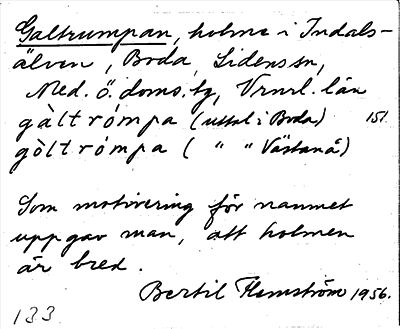 Galtrumpan, holme i Indals-
älven, Boda, Lidens sn,
Med. ö. doms. tg, Vrnrl. län
gàltrómpa (uttal i Boda) 151
gòltrómpa ( " " Västanå)
Som motivering för namnet
uppgav man, att holmen
är bred.
Bertil Flemström 1956.
133